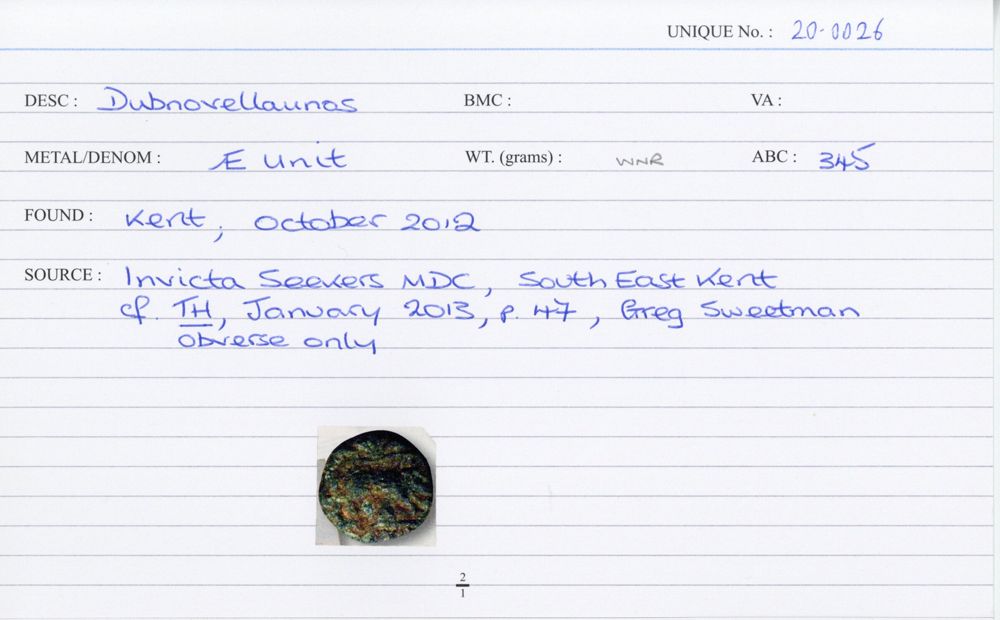 UNIQUE No. : 20-0026
DESC : Dubnovellaunos BMC : VA :
METAL/DENOM : Æ Unit WT. (grams) : WNR ABC : 345
FOUND : Kent, October 2012
SOURCE : Invicta Seekers MDC, South East Kent
cf. TH, January 2013, p. 47, Greg Sweetman
obverse only
2
1